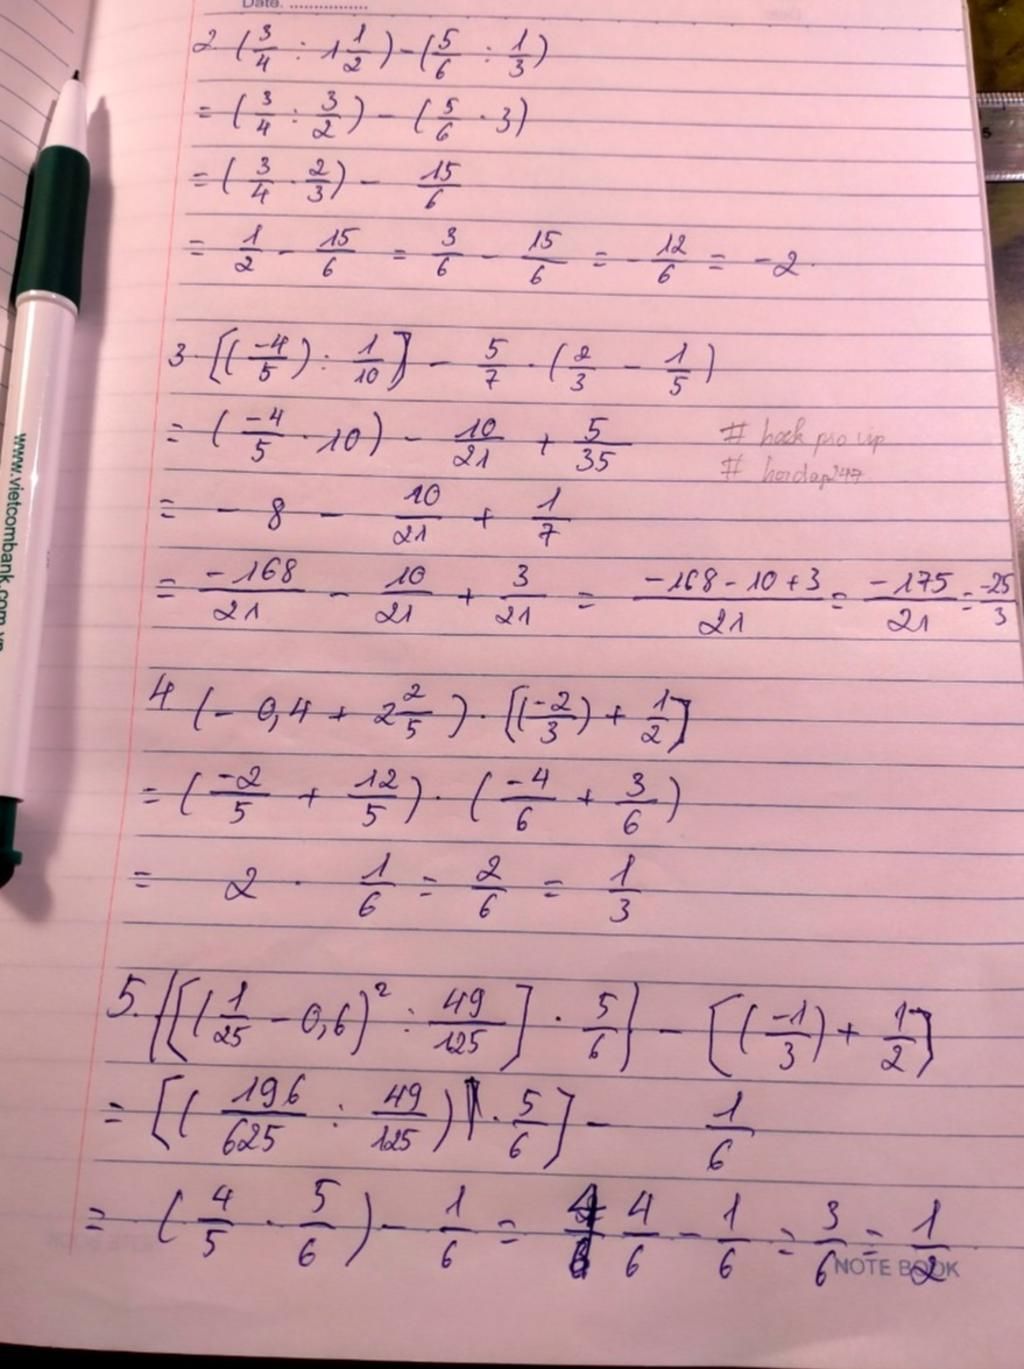 Date.
2 (3/4 : 1 1/2) - (5/6 : 1/3)
= (3/4 : 3/2) - (5/6 . 3)
= (3/4 . 2/3) - 15/6
= 1/2 - 15/6 = 3/6 - 15/6 = - 12/6 = -2.
3. [(-4/5) : 1/10] - 5/7 . (2/3 - 1/5)
= (-4/5 . 10) - 10/21 + 5/35
# hock pro vip
# hoidap247
= - 8 - 10/21 + 1/7
= -168/21 - 10/21 + 3/21 = -168 - 10 + 3/21 = -175/21 = -25/3
4 (- 0,4 + 2 2/5) . [(-2/3) + 1/2]
= (-2/5 + 12/5) . (-4/6 + 3/6)
= 2 . 1/6 = 2/6 = 1/3
5. {[(1/25 - 0,6)² : 49/125] . 5/6} - [(-1/3) + 1/2]
= [(196/625 : 49/125) . 5/6] - 1/6
= (4/5 . 5/6) - 1/6 = 4/6 - 1/6 = 3/6 = 1/2
NOTE BOOK
www.vietcombank.com.vn